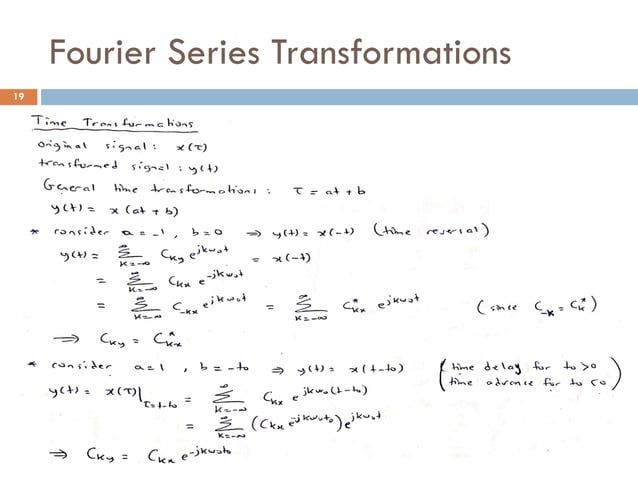 Fourier Series Transformations
19
Time Transformations
original signal: x(τ)
transformed signal: y(t)
General time transformations: τ = at + b
y(t) = x(at + b)
* consider a = -1, b = 0 ⇒ y(t) = x(-t) (time reversal)
y(t) = ∑_{k=-∞}^{∞} C_{ky} e^{jkω₀t} = x(-t)
= ∑_{k=-∞}^{∞} C_{kx} e^{-jkω₀t}
= ∑_{k=-∞}^{∞} C_{-kx} e^{jkω₀t} = ∑_{k=-∞}^{∞} C*_{kx} e^{jkω₀t} (since C_{-k} = C_k^*)
⇒ C_{ky} = C*_{kx}
* consider a = 1, b = -t₀ ⇒ y(t) = x(t-t₀) (time delay for t₀>0
time advance for t₀<0)
y(t) = x(τ)|_{τ=t-t₀} = ∑_{k=-∞}^{∞} C_{kx} e^{jkω₀(t-t₀)}
= ∑_{k=-∞}^{∞} (C_{kx} e^{-jkω₀t₀}) e^{jkω₀t}
⇒ C_{ky} = C_{kx} e^{-jkω₀t₀}